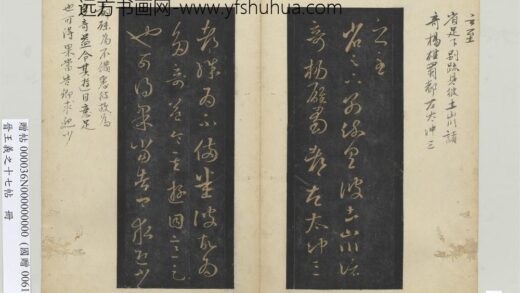 远方书画网- www.yfshuhua.com
云至
省足下别疏具彼土山川諸
奇楊雄蜀都左太冲三
云至
省足下别疏具彼土山川諸
奇楊雄蜀都左太冲三
都殊為不備悉彼故為
多奇益令其遊目意足
也可得果當告卿求迎少
殊為不備悉彼故為
奇益令其遊目意足
也可得果當告卿求迎少
贈帖 000036N000000000 (國贈 0061
晉王羲之十七帖 冊